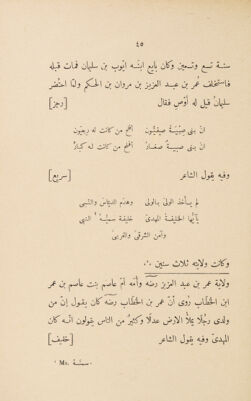 ٤٥
سنة تسع وتسعين وكان بايع ابنه ايّوب بن سليمان فمات قبله
فاستخلف عُمر بن عبد العزيز بن مروان بن الحكم ولمّا احتُضر
سليمانُ قيل له أَوْصِ فقال [رجز]
انّ بنىّ صِبْيَةٌ صيفيّون افلح من كانت له ربعيّون
انّ بنىّ صبيةٌ صغارُ افلح من كانت له كبارُ
وفيه يقول الشاعر [سريع]
لم يأخُذ الولىَّ بالولى وهدم الديماس والنبى
يأيّها الخليفةُ المهدىّ خليفة سميّه ¹ النبى
وامن الشرقىّ والغربىّ
وكانت ولايته ثلاث سنين ∴
ولاية عمر بن عبد العزيز رضّه وأُمّه امّ عاصم بنت عاصم بن عمر
ابن الخطّاب روى أنّ عمر بن الخطّاب رضّه كان يقول إنّ من
ولدى رجُلًا يملأ الارض عدلًا وكثيرٌ من الناس يقولون انّه كان
المهدىّ وفيه يقول الشاعر [خفيف]
¹ Ms. سمّنة.